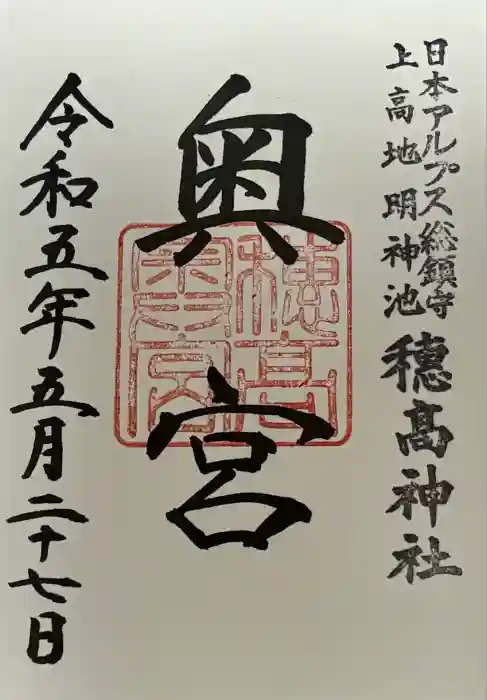 日本アルプス総鎮守
上高地明神池
穂髙神社
奥宮
穂高奥宮
令和五年五月二十七日